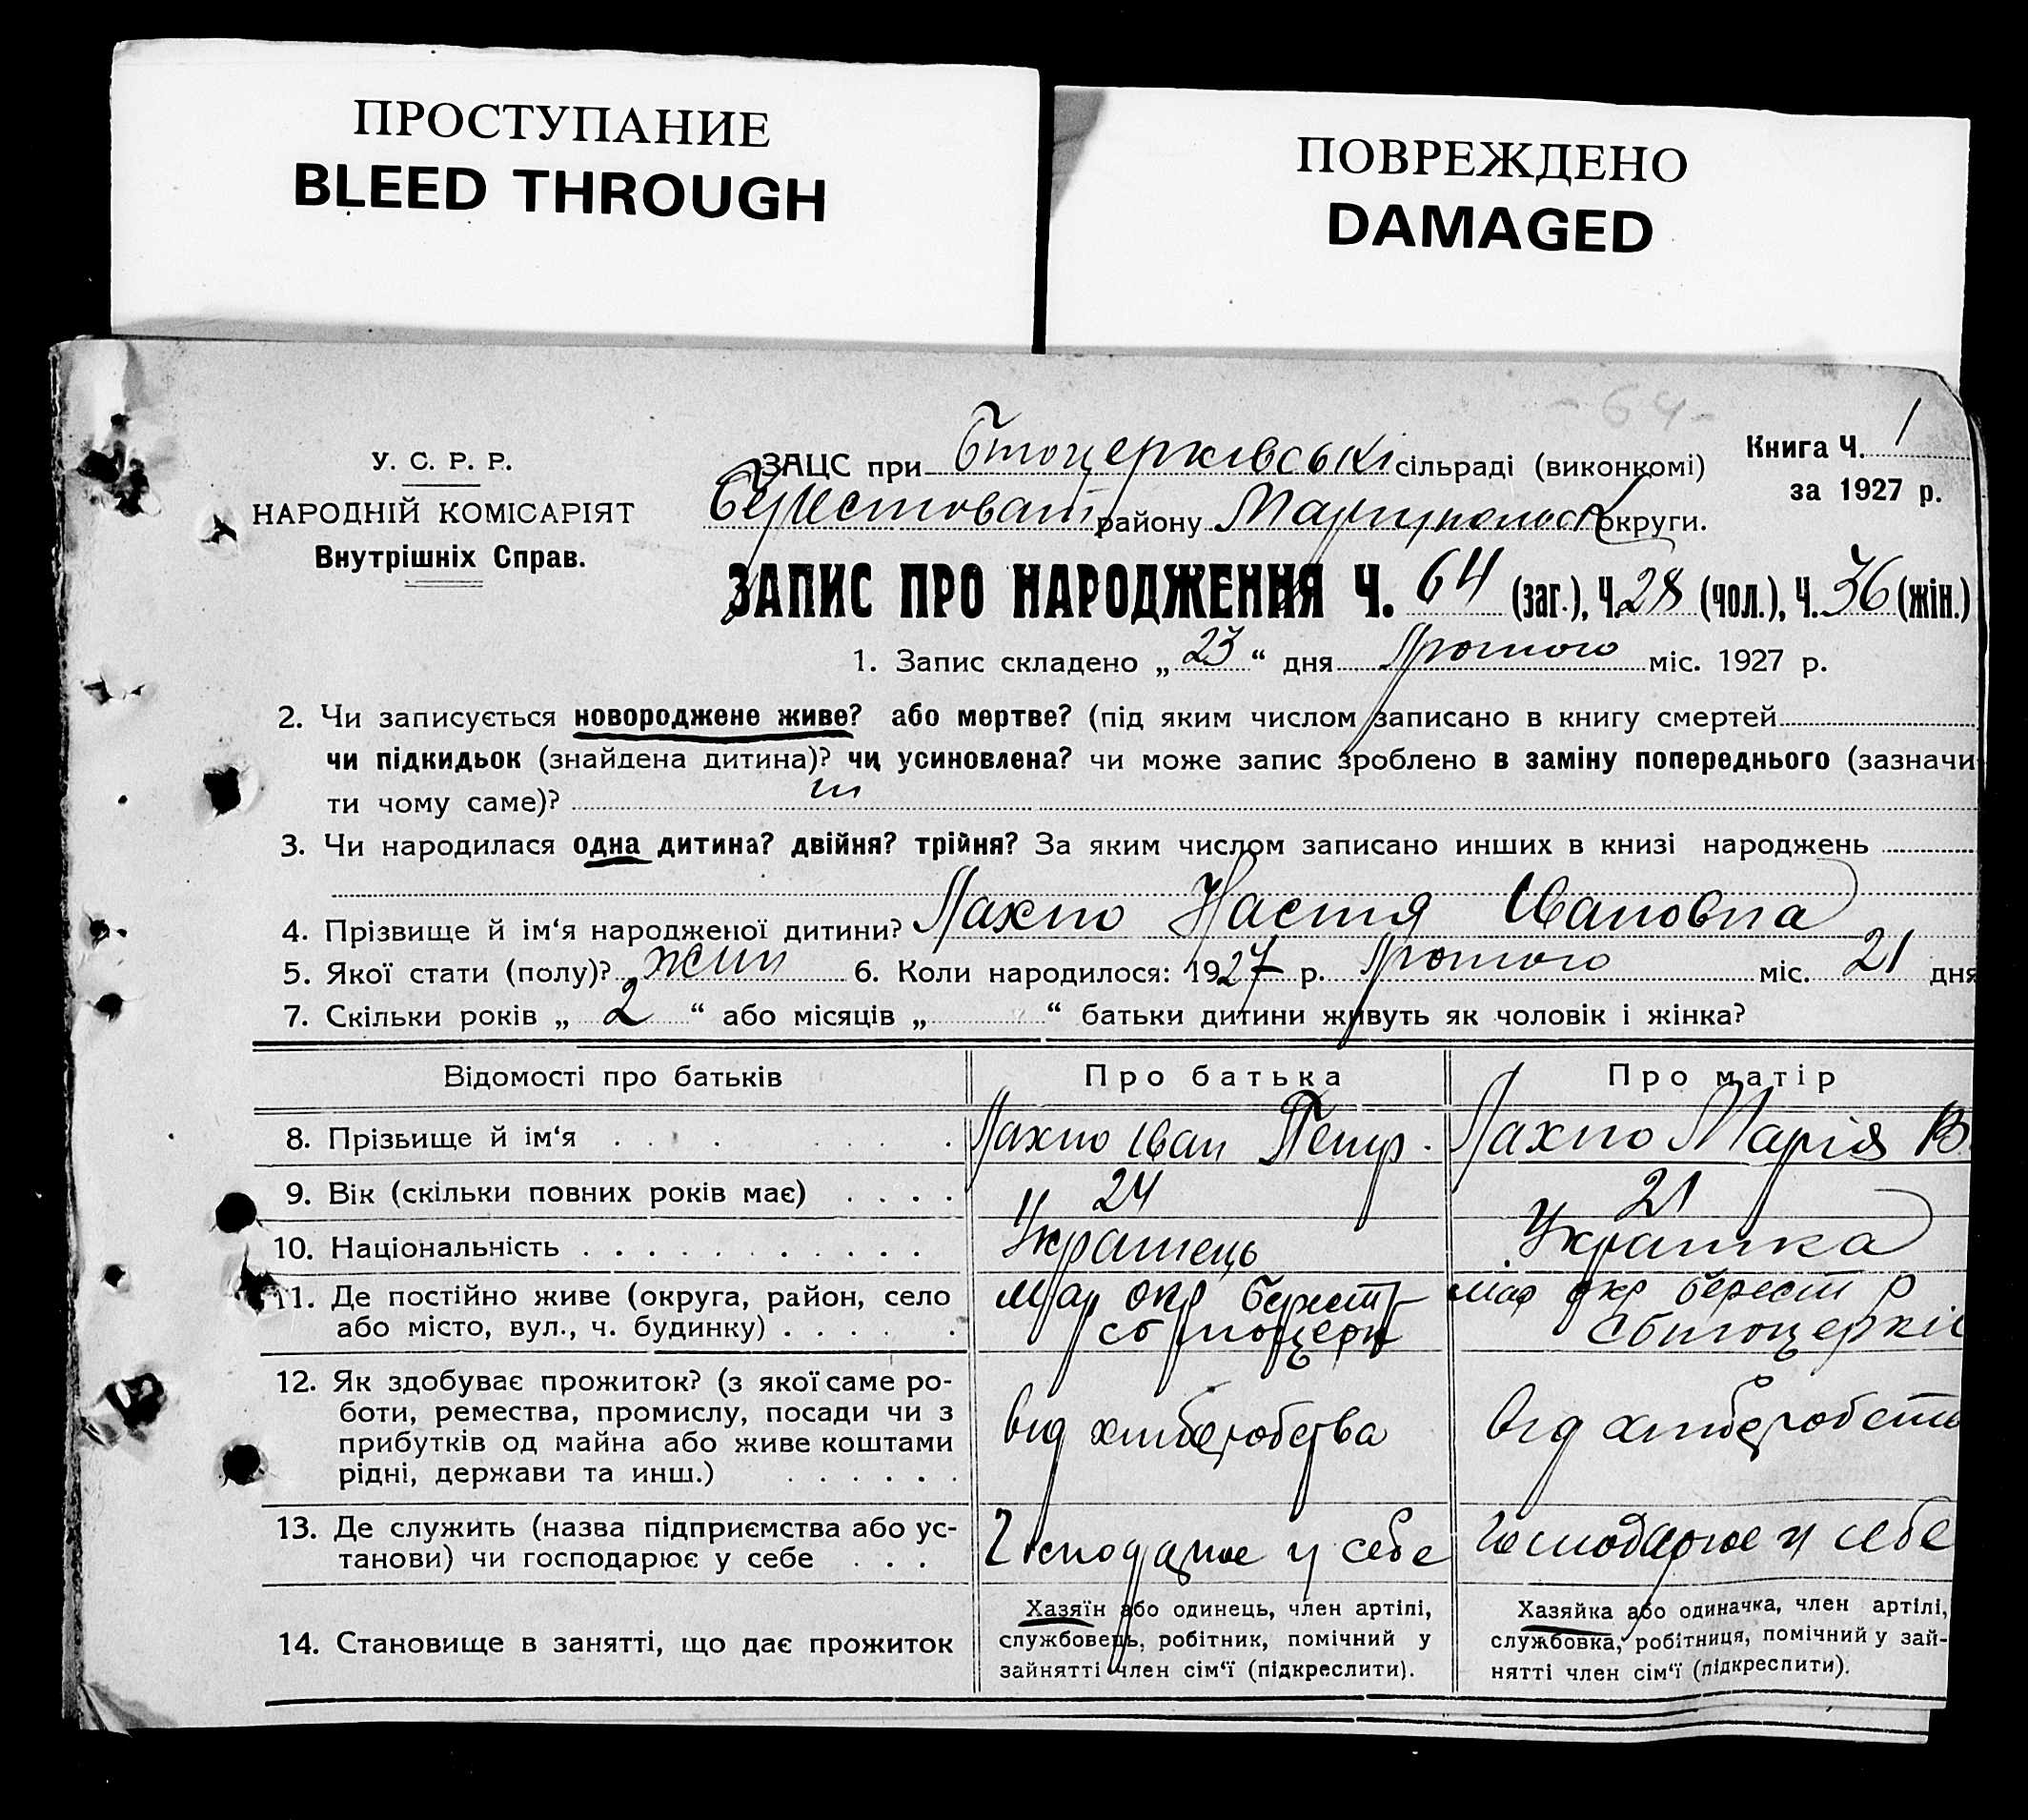 ПРОСТУПАНИЕ
BLEED THROUGH
ПОВРЕЖДЕНО
DAMAGED
- 64 -
У. С. Р. Р.
НАРОДНІЙ КОМІСАРІЯТ
Внутрішніх Справ.
Книга Ч. 1
за 1927 р.
ЗАЦС при сільраді (виконкомі)
Берестоват району Маріупольськ округи.
ЗАПИС ПРО НАРОДЖЕННЯ Ч. 64 (заг.), Ч. 28 (чол.), Ч. 36 (жін.)
1. Запис складено „ 23 “ дня Лютого міс. 1927 р.
2. Чи записується новороджене живе? або мертве? (під яким числом записано в книгу смертей
чи підкидьок (знайдена дитина)? чи усиновлена? чи може запис зроблено в заміну попереднього (зазначи
ти чому саме)?
3. Чи народилася одна дитина? двійня? трійня? За яким числом записано инших в книзі народжень
4. Прізвище й ім‘я народженої дитини? Лахно Настя Ивановна
5. Якої стати (полу)? жин 6. Коли народилося: 1927 р. Лютого міс. 21 дня
7. Скільки років „ 2 “ або місяців „ “ батьки дитини живуть як чоловік і жінка?
Відомості про батьків Про батька Про матір
8. Прізвище й ім‘я Лахно Иван Петр. Лахно Марія В
9. Вік (скільки повних років має) 24 21
10. Національність Українець Українка
11. Де постійно живе (округа, район, село Мар окр Берест Мар окр Берест р
або місто, вул., ч. будинку)
12. Як здобуває прожиток? (з якої саме ро-
боти, ремества, промислу, посади чи з від хліборобства від хліборобств
прибутків од майна або живе коштами
рідні, держави та инш.)
13. Де служить (назва підприємства або ус- Господарює у себе Господарює у себе
танови) чи господарює у себе
14. Становище в занятті, що дає прожиток
Хазяїн або одинець, член артілі,
службовець, робітник, помічний у
зайнятті член сім‘ї (підкреслити).
Хазяйка або одиначка, член артілі,
службовка, робітниця, помічний у зай-
нятті член сім‘ї (підкреслити).